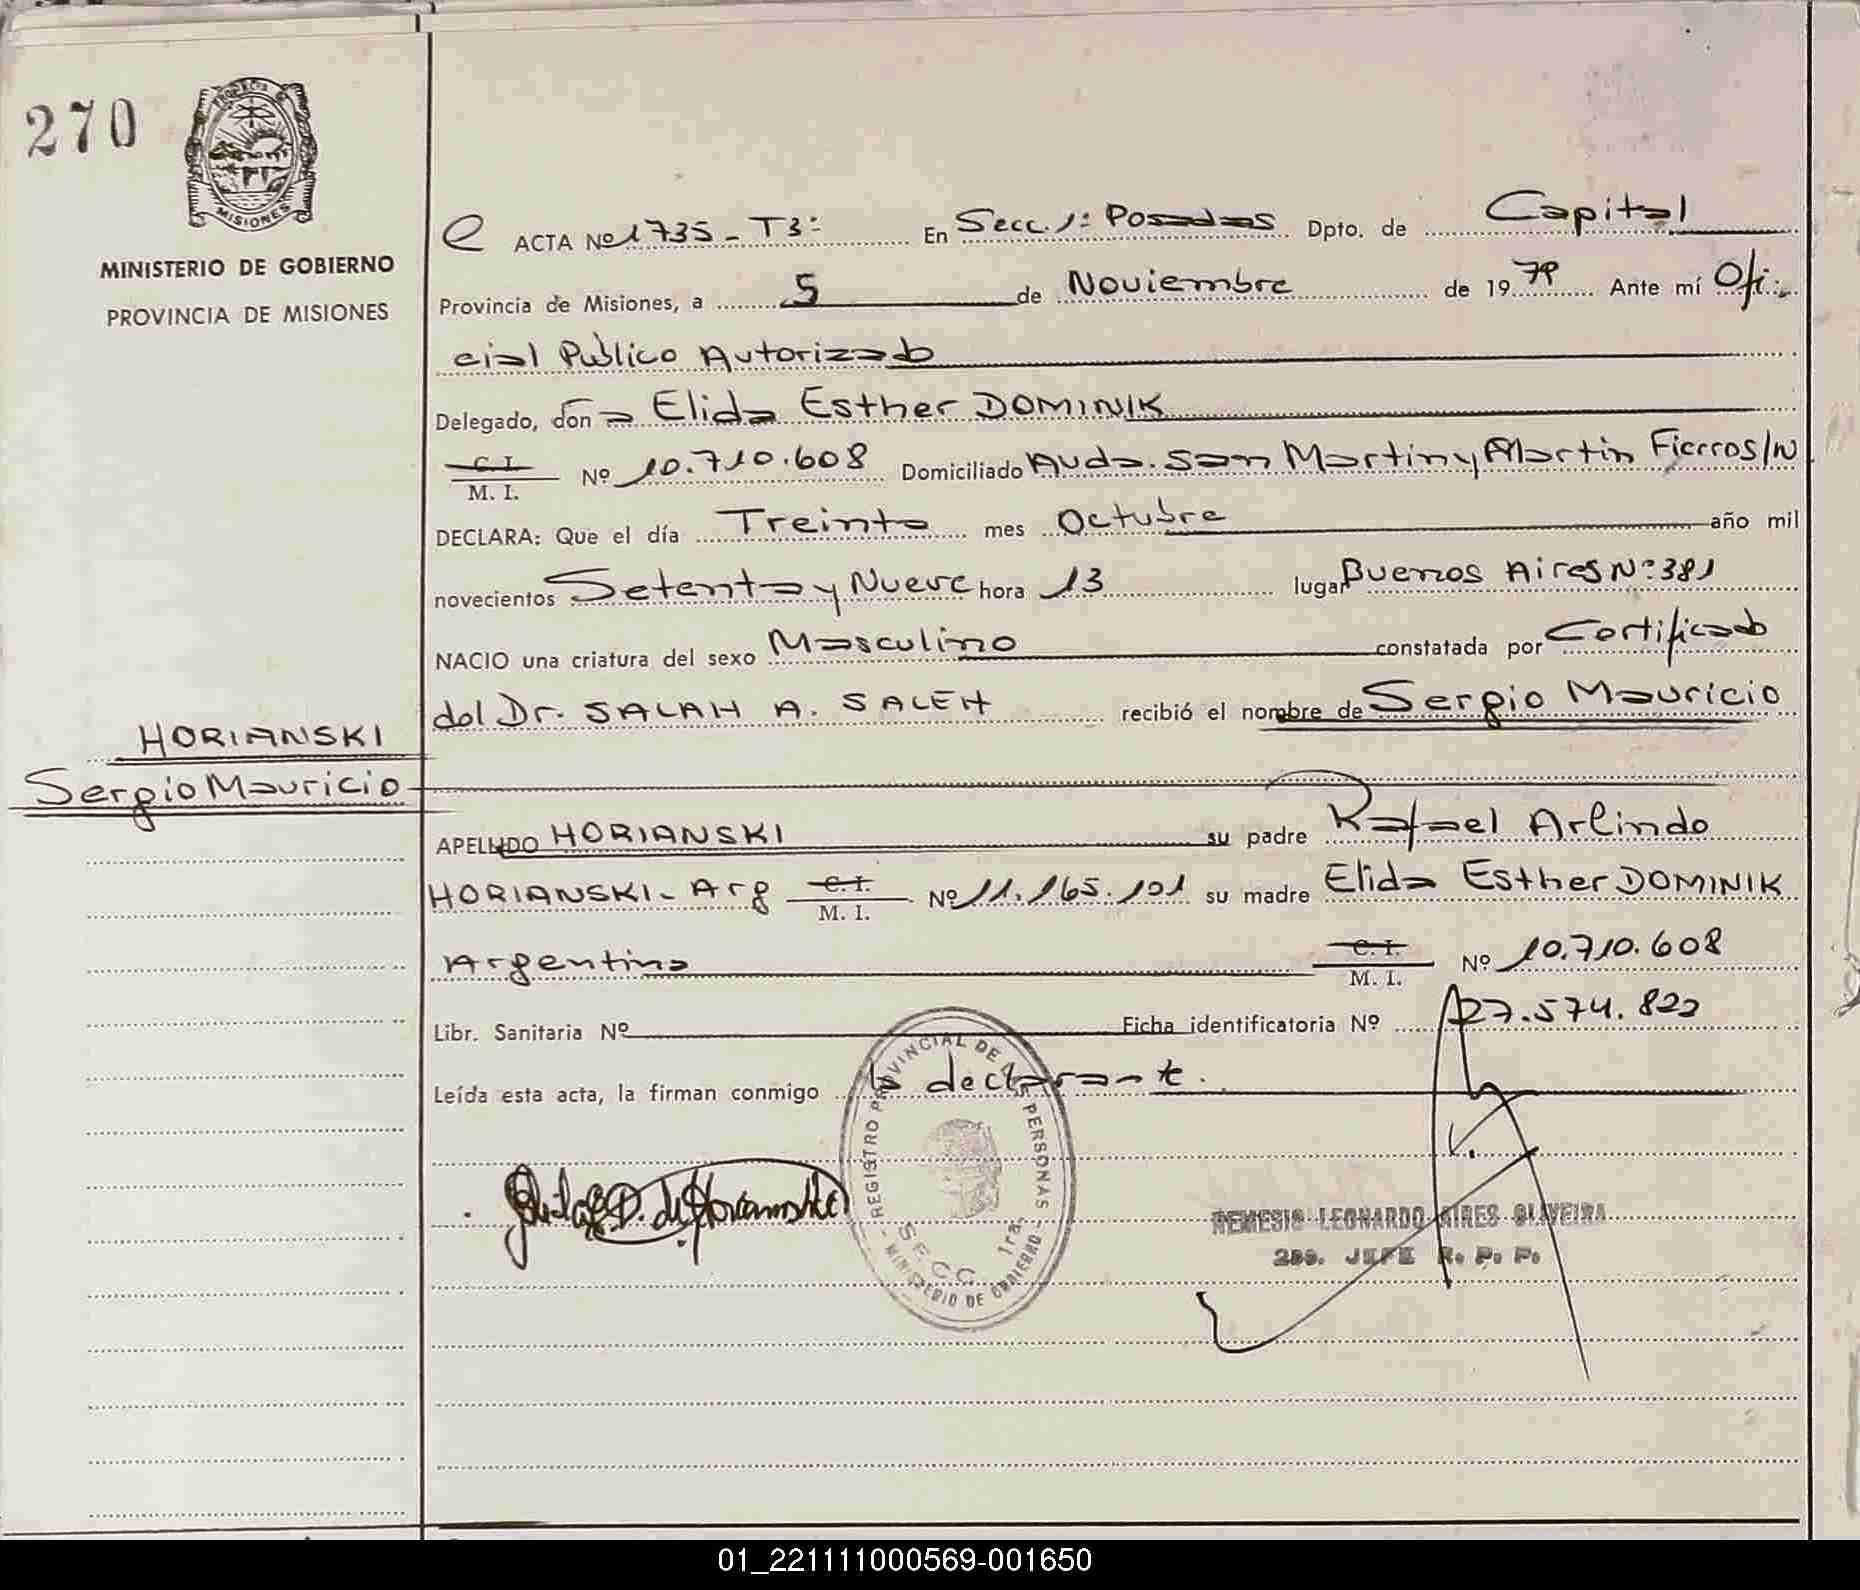 270
PROVINCIA DE
MISIONES
MINISTERIO DE GOBIERNO
PROVINCIA DE MISIONES
HORIANSKI
Sergio Mauricio
ACTA Nº 1735 - T3º En Secc. 1º Posadas Dpto. de Capital
Provincia de Misiones, a 5 de Noviembre de 1979 Ante mí Ofi-
cial Público Autorizado
Delegado, doña Elida Esther DOMINIK
C. I.
M. I. Nº 10.710.608 Domiciliado Avda. San Martin y Martin Fierro s/n
DECLARA: Que el día Treinta mes Octubre año mil
novecientos Setenta y Nueve hora 13 lugar Buenos Aires Nº 381
NACIO una criatura del sexo Masculino constatada por Certificado
del Dr. SALAH A. SALEH recibió el nombre de Sergio Mauricio
APELLIDO HORIANSKI su padre Rafael Arlindo
HORIANSKI - Arg C. I.
M. I. Nº 11.165.101 su madre Elida Esther DOMINIK
Argentina C. I.
M. I. Nº 10.710.608
Libr. Sanitaria Nº Ficha identificatoria Nº 27.574.822
Leída esta acta, la firman conmigo la declarante.
REGISTRO PROVINCIAL DE LAS PERSONAS
SECC. 1ra.
MINISTERIO DE GOBIERNO
NEMESIO LEONARDO AIRES OLIVEIRA
2do. JEFE R. P. P.
01_221111000569-001650